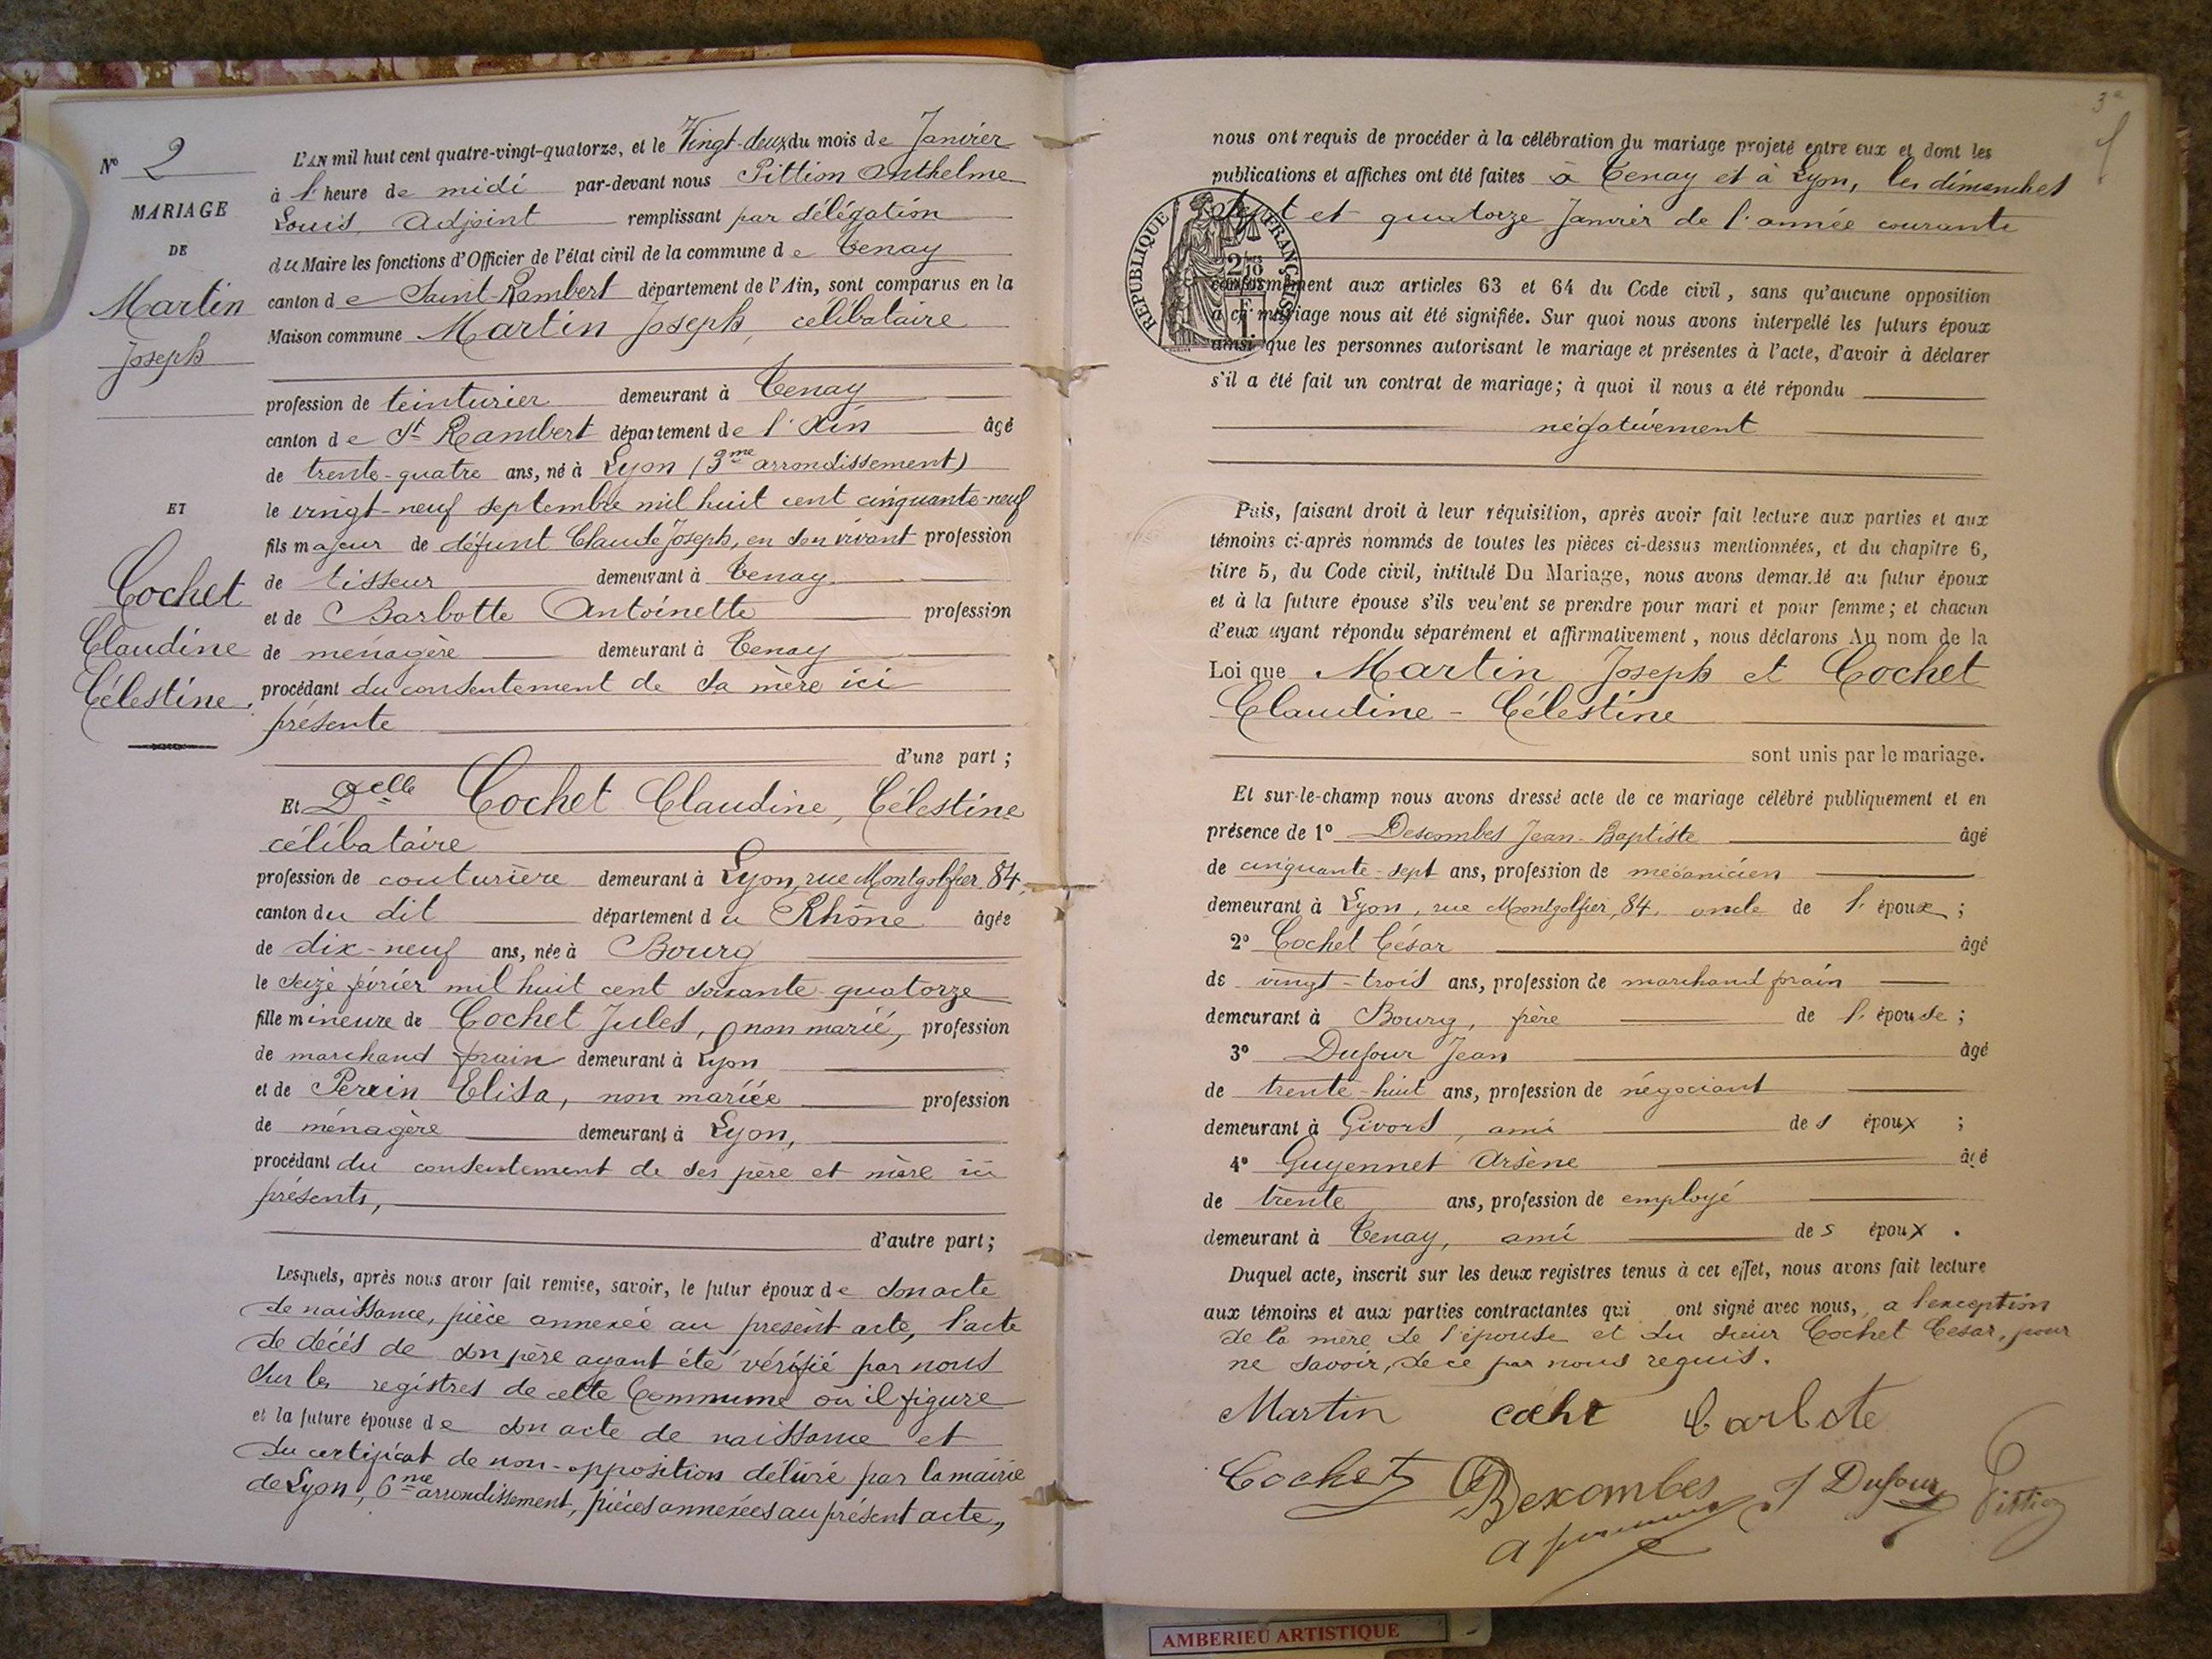 N° 2
MARIAGE
DE
Martin
Joseph
ET
Cochet
Claudine
Célestine.
L'AN mil huit cent quatre-vingt-quatorze, et le Vingt-deux du mois de Janvier
à l' heure de midi par-devant nous Pittion Anthelme
Louis, Adjoint remplissant par délégation
du Maire les fonctions d'Officier de l'état civil de la commune de Tenay
canton de Saint-Rambert département de l'Ain, sont comparus en la
Maison commune Martin Joseph, célibataire
profession de teinturier demeurant à Tenay
canton de St Rambert département de l'Ain âgé
de trente-quatre ans, né à Lyon (3me arrondissement)
le vingt-neuf septembre mil huit cent cinquante-neuf
fils majeur de défunt Claude Joseph, en son vivant profession
de tisseur demeurant à Tenay
et de Barbotte Antoinette profession
de ménagère demeurant à Tenay
procédant du consentement de sa mère ici
présente
d'une part ;
Et Delle Cochet Claudine, Célestine
célibataire
profession de couturière demeurant à Lyon, rue Montgolfier, 84,
canton du dit département du Rhône âgée
de dix-neuf ans, née à Bourg
le seize février mil huit cent soixante-quatorze
fille mineure de Cochet Jules, non marié, profession
de marchand forain demeurant à Lyon
et de Perrin Elisa, non mariée profession
de ménagère demeurant à Lyon,
procédant du consentement de ses père et mère ici
présents,
d'autre part ;
Lesquels, après nous avoir fait remise, savoir, le futur époux de son acte
de naissance, pièce annexée au présent acte, l'acte
de décés de son père ayant été vérifié par nous
sur les registres de cette Commune où il figure
et la future épouse de son acte de naissance et
du certificat de non-opposition délivré par la mairie
de Lyon, 6me arrondissement, pièces annexées au présent acte,
3e
nous ont requis de procéder à la célébration du mariage projeté entre eux et dont les
publications et affiches ont été faites à Tenay et à Lyon, les dimanches
sept et quatorze Janvier de l'année courante
RÉPUBLIQUE FRANÇAISE
conformément aux articles 63 et 64 du Code civil, sans qu'aucune opposition
à ce mariage nous ait été signifiée. Sur quoi nous avons interpellé les futurs époux
ainsi que les personnes autorisant le mariage et présentes à l'acte, d'avoir à déclarer
s'il a été fait un contrat de mariage ; à quoi il nous a été répondu
négativement
Puis, faisant droit à leur réquisition, après avoir fait lecture aux parties et aux
témoins ci-après nommés de toutes les pièces ci-dessus mentionnées, et du chapitre 6,
titre 5, du Code civil, intitulé Du Mariage, nous avons demandé au futur époux
et à la future épouse s'ils veulent se prendre pour mari et pour femme ; et chacun
d'eux ayant répondu séparément et affirmativement, nous déclarons Au nom de la
Loi que Martin Joseph et Cochet
Claudine - Célestine
sont unis par le mariage.
Et sur-le-champ nous avons dressé acte de ce mariage célébré publiquement et en
présence de 1° Descombes Jean-Baptiste âgé
de cinquante-sept ans, profession de mécanicien
demeurant à Lyon, rue Montgolfier, 84, oncle de l' époux ;
2° Cochet César âgé
de vingt-trois ans, profession de marchand forain
demeurant à Bourg, frère de l' épouse ;
3° Dufour Jean âgé
de trente-huit ans, profession de négociant
demeurant à Givors, ami des époux ;
4° Guyennet Arsène âgé
de trente ans, profession de employé
demeurant à Tenay, ami des époux .
Duquel acte, inscrit sur les deux registres tenus à cet effet, nous avons fait lecture
aux témoins et aux parties contractantes qui ont signé avec nous, a l'exception
de la mère de l'épouse et du sieur Cochet César, pour
ne savoir, de ce par nous requis.
Martin
Cochet Descombes J Dufour Pittion
AMBERIEU ARTISTIQUE